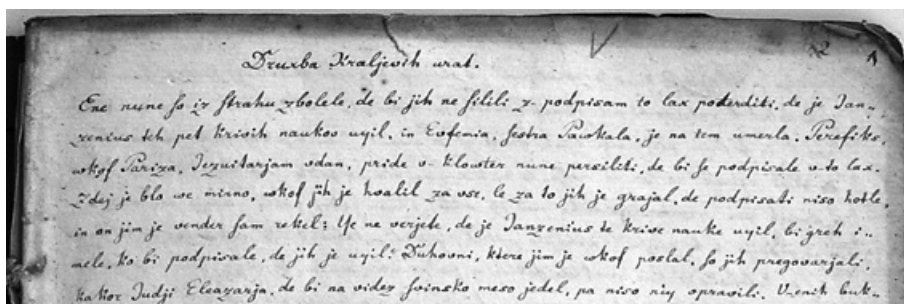 Druxba Kraljevih vrat.
Ene nune so iz strahu zbolele, de bi jih ne silili z- podpisam to lax poterditi, de je Jan-
zenius teh pet krivih naukov uqil, in Evfemia, sestra Paskala, je na tem umerla. Perefiks,
wkof Pariza, Jezuitarjam vdan, pride v- klowter nune persiliti, de bi se podpisale v-to lax.
Zdej je blo we mirno, wkof jih je hvalil za vse, le za to jih je grajal, de podpisati niso hotle,
in on jim je vender sam rekel: qe ne verjete, de je Janzenius te krive nauke uqil, bi greh i-
mele, ko bi podpisale, de jih je uqil. Duhovni, ktere jim je wkof poslal, so jih pregovarjali,
kakor Judji Eleazarja, de bi na videz svinsko meso jedel, pa niso niq opravili. V-enih buk-